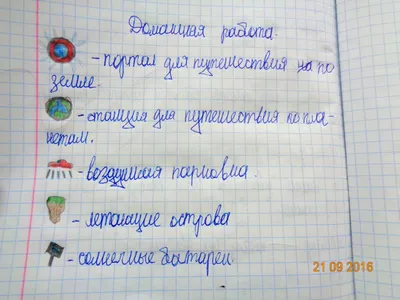 Домашняя работа.
- портал для путешествия по
земле.
- станция для путешествия по пла-
нетам.
- воздушная парковка.
- летающие острова
- солнечные батареи
21 09 2016